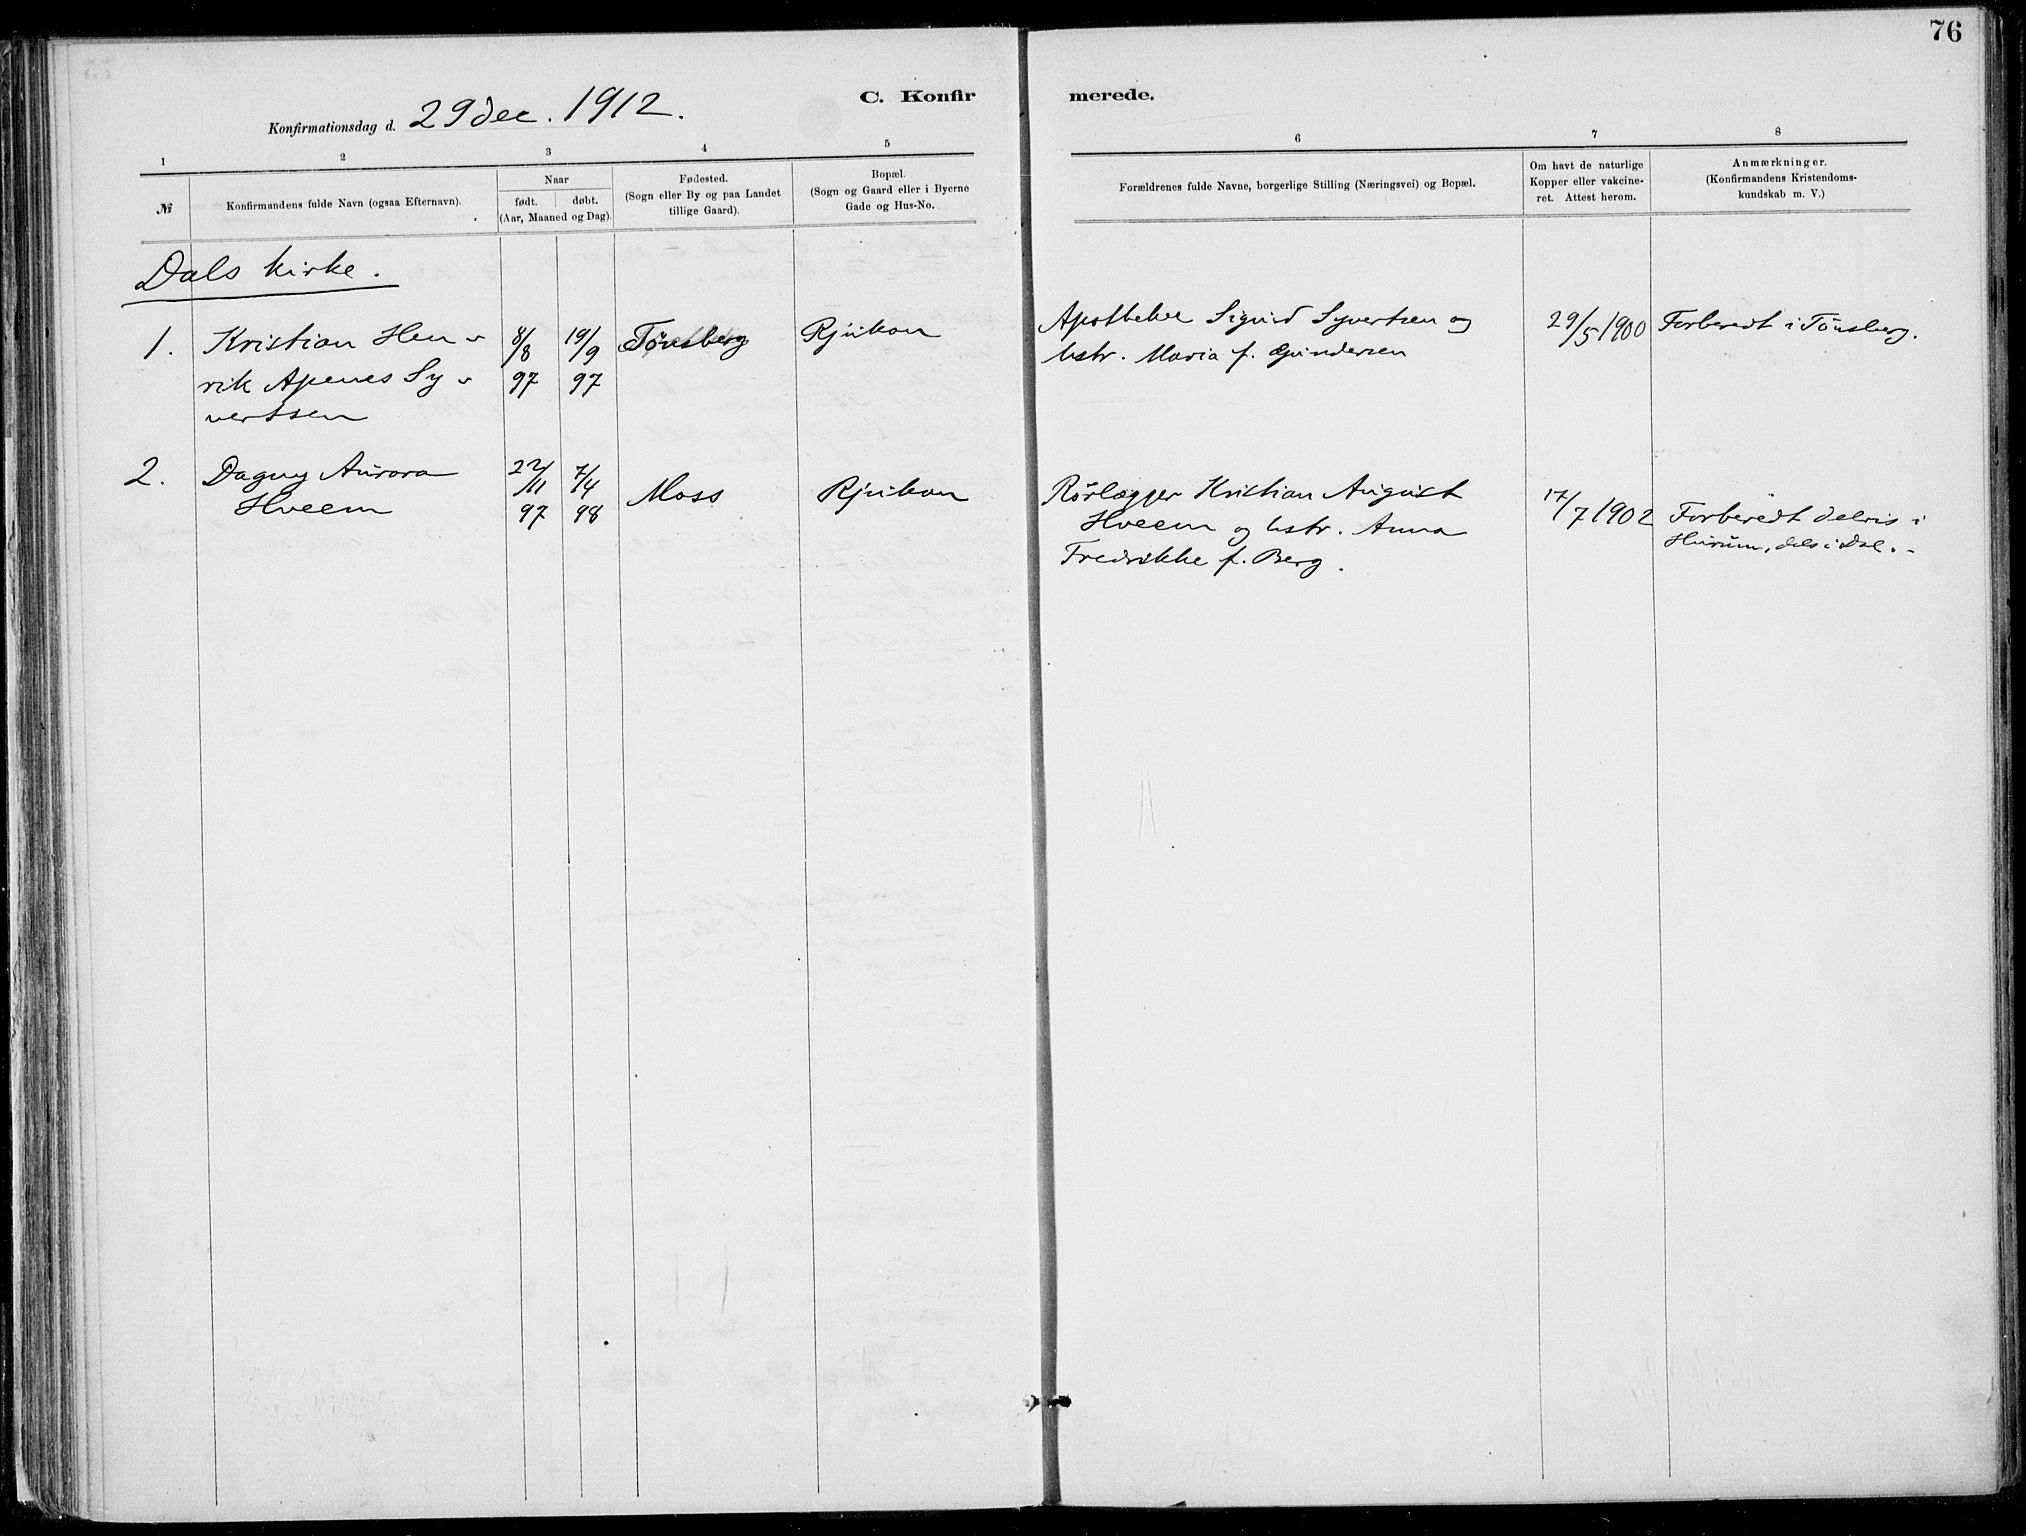 76
C. Konfir
merede.
Konfirmationsdag d. 29 dec. 1912.
1 2 3 4 5 6 7 8
№
Konfirmandens fulde Navn (ogsaa Efternavn).
Naar
født. døbt.
(Aar, Maaned og Dag).
Fødested.
(Sogn eller By og paa Landet
tillige Gaard).
Bopæl.
(Sogn og Gaard eller i Byerne
Gade og Hus-No.
Forældrenes fulde Navne, borgerlige Stilling (Næringsvei) og Bopæl.
Om havt de naturlige
Kopper eller vakcine-
ret. Attest herom.
Anmærkninger.
(Konfirmandens Kristendoms-
kundskab m. V.)
Dals kirke.
1. Kristian Hen-
rik Apenes Sy-
vertsen
8/8 97
19/9 97
Tønsberg
Rjukan
Apotheker Sigurd Syvertsen og
hstr. Maria f. Gundersen
29/5 1900
Forberedt i Tønsberg.
2. Dagny Aurora
Hveem
22/11 97
7/4 98
Moss
Rjukan
Rørlægger Kristian August
Hveem og hstr. Anna
Fredrikke f. Berg.
17/7 1902
Forberedt delvis i
Hurum, dels i Dal.